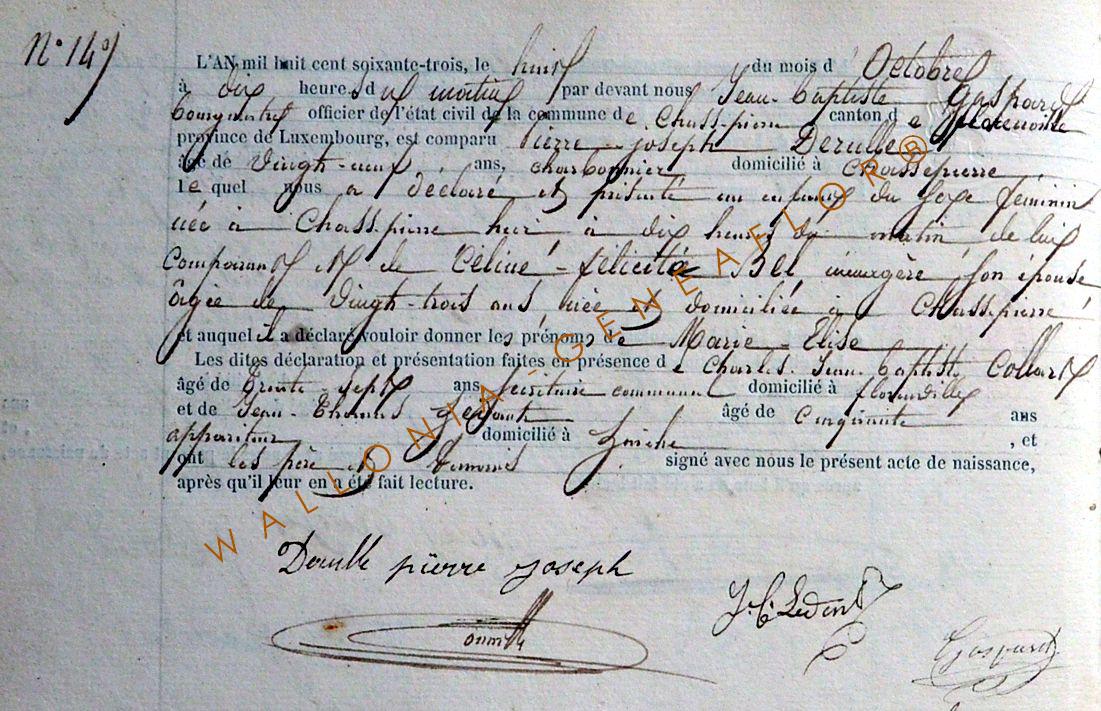 N° 149
L'AN mil huit cent soixante-trois, le huit du mois d'Octobre
à dix heures du matin par devant nous Jean-Baptiste Gaspard
Bourgmestre officier de l'état civil de la commune de Chassepierre canton de Florenville
province de Luxembourg, est comparu Pierre-Joseph Derulle
âgé de vingt-neuf ans, charbonnier domicilié à Chassepierre
lequel nous a déclaré et présenté un enfant du sexe féminin
née à Chassepierre hier à dix heures du matin, de lui
Comparant et de Céline-félicité Bel ménagère son épouse
âgée de vingt-trois ans, née et domiciliée à Chassepierre
et auquel il a déclaré vouloir donner les prénoms de Marie-Elise
Les dites déclaration et présentation faites en présence de Charles Jean-Baptiste Collard
âgé de trente-sept ans secrétaire communal domicilié à florenville
et de Jean-Thomas âgé de cinquante ans
appariteur domicilié à , et
ont les père et témoins signé avec nous le présent acte de naissance,
après qu'il leur en a été fait lecture.
WALLONIA-GENEAFLOR®
Derulle pierre joseph
Gaspard